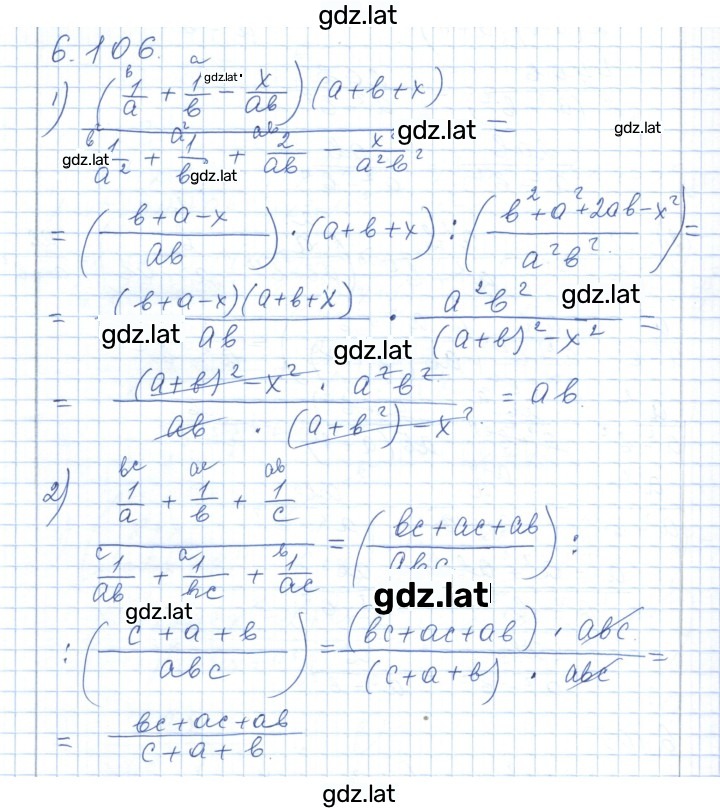 gdz.lat
6.106.
1) ((1/a)^b + (1/b)^a − x/ab)(a+b+x) gdz.lat
/ ((1/a²)^b² + (1/b²)^a² + (2/ab)^ab − x²/a²b²) = gdz.lat gdz.lat gdz.lat gdz.lat
= ((b+a−x)/ab) · (a+b+x) : ((b²+a²+2ab−x²)/a²b²) =
= (b+a−x)(a+b+x)/ab · a²b²/((a+b)²−x²) = gdz.lat gdz.lat gdz.lat
= ((a+b)²−x² · a²b²)/(ab · (a+b²)−x²) = ab.
2) ((1/a)^bc + (1/b)^ac + (1/c)^ab) / ((1/ab)^c + (1/bc)^a + (1/ac)^b) = ((bc+ac+ab)/abc) :
gdz.lat gdz.lat
: ((c+a+b)/abc) = ((bc+ac+ab) · abc)/((c+a+b) · abc) =
= (bc+ac+ab)/(c+a+b).
gdz.lat